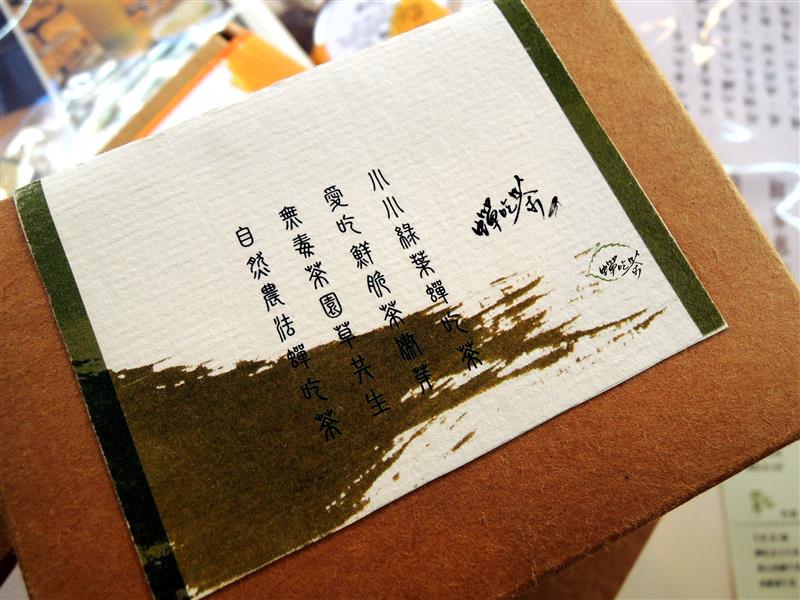 蟬吃茶
小小綠葉蟬吃茶
愛吃鮮脆茶嫩芽
無毒茶園草共生
自然農法蟬吃茶
蟬吃茶